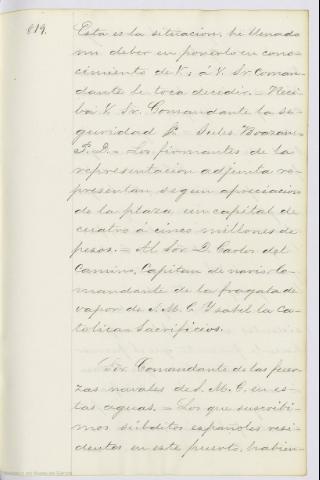 819.
Esta es la situacion, he llenado
mi deber en ponerlo en cono-
cimiento de V.; á V. Sr. Coman-
dante le toca decidir. = Reci-
ba V. Sr. Comandante la se-
guridad &ª = Jules
P. D. = Los firmantes de la
representacion adjunta re-
presentan segun apreciacion
de la plaza un capital de
cuatro á cinco millones de
pesos. = Al Sor. D. Carlos del
Camino, Capitan de navio Co-
mandante de la fragata de
vapor de S. M. C. Ysabel la Ca-
tolica = Sacrificios.
Sor. Comandante de las fuer-
zas navales de S. M. C. en es-
tas aguas. = Los que suscribi-
mos súbditos españoles resi-
dentes en este puerto, habien-